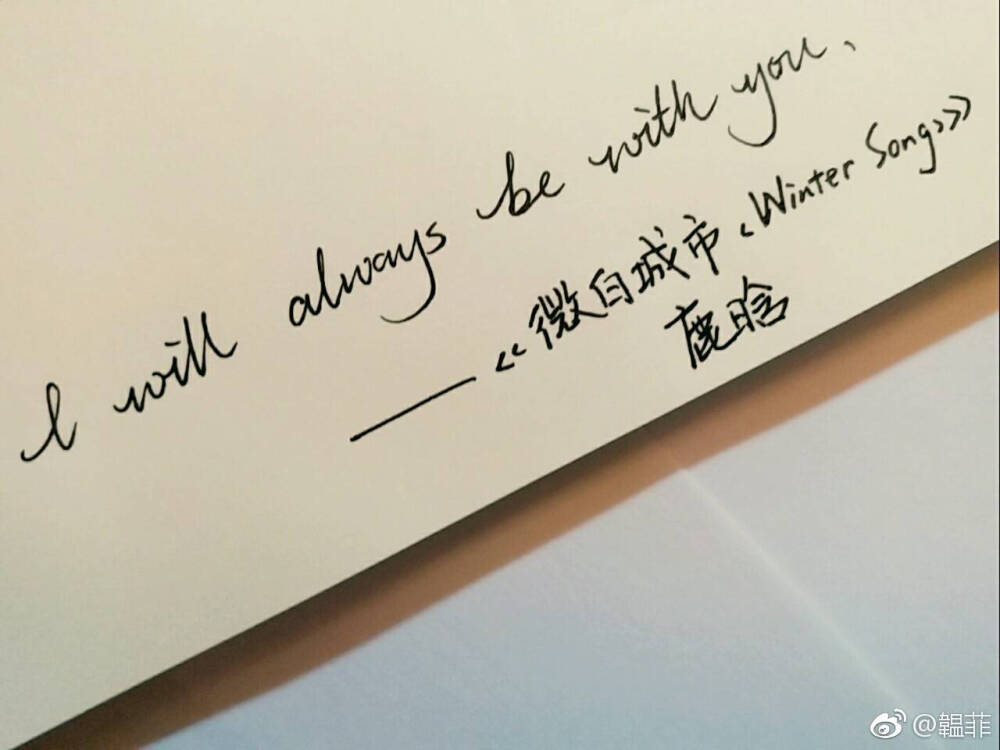 I will always be with you.
——《微白城市〈Winter Song〉》
鹿晗
@韫菲